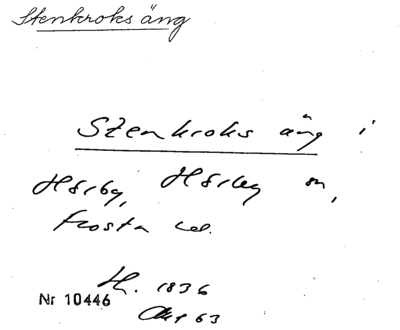 Stenkroks äng
Stenkroks äng i
Hörby, Hörby sn,
Frosta hd.
H. 1836
Nr 10446
Akt 63